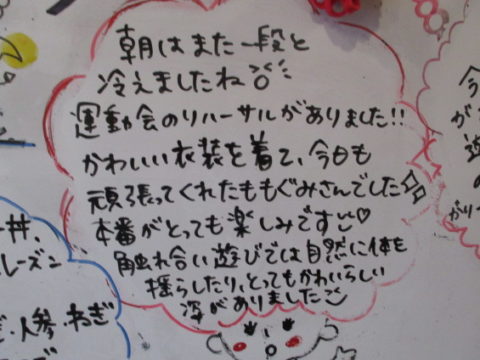 朝はまた一段と
冷えましたね
運動会のリハーサルがありました!!
かわいい衣装を着て、今日も
頑張ってくれたももぐみさんでした
本番がとっても楽しみです♡
触れ合い遊びでは自然に体を
揺らしたり、とってもかわいらしい
姿がありました
丼、
レーズン
人参・ねぎ